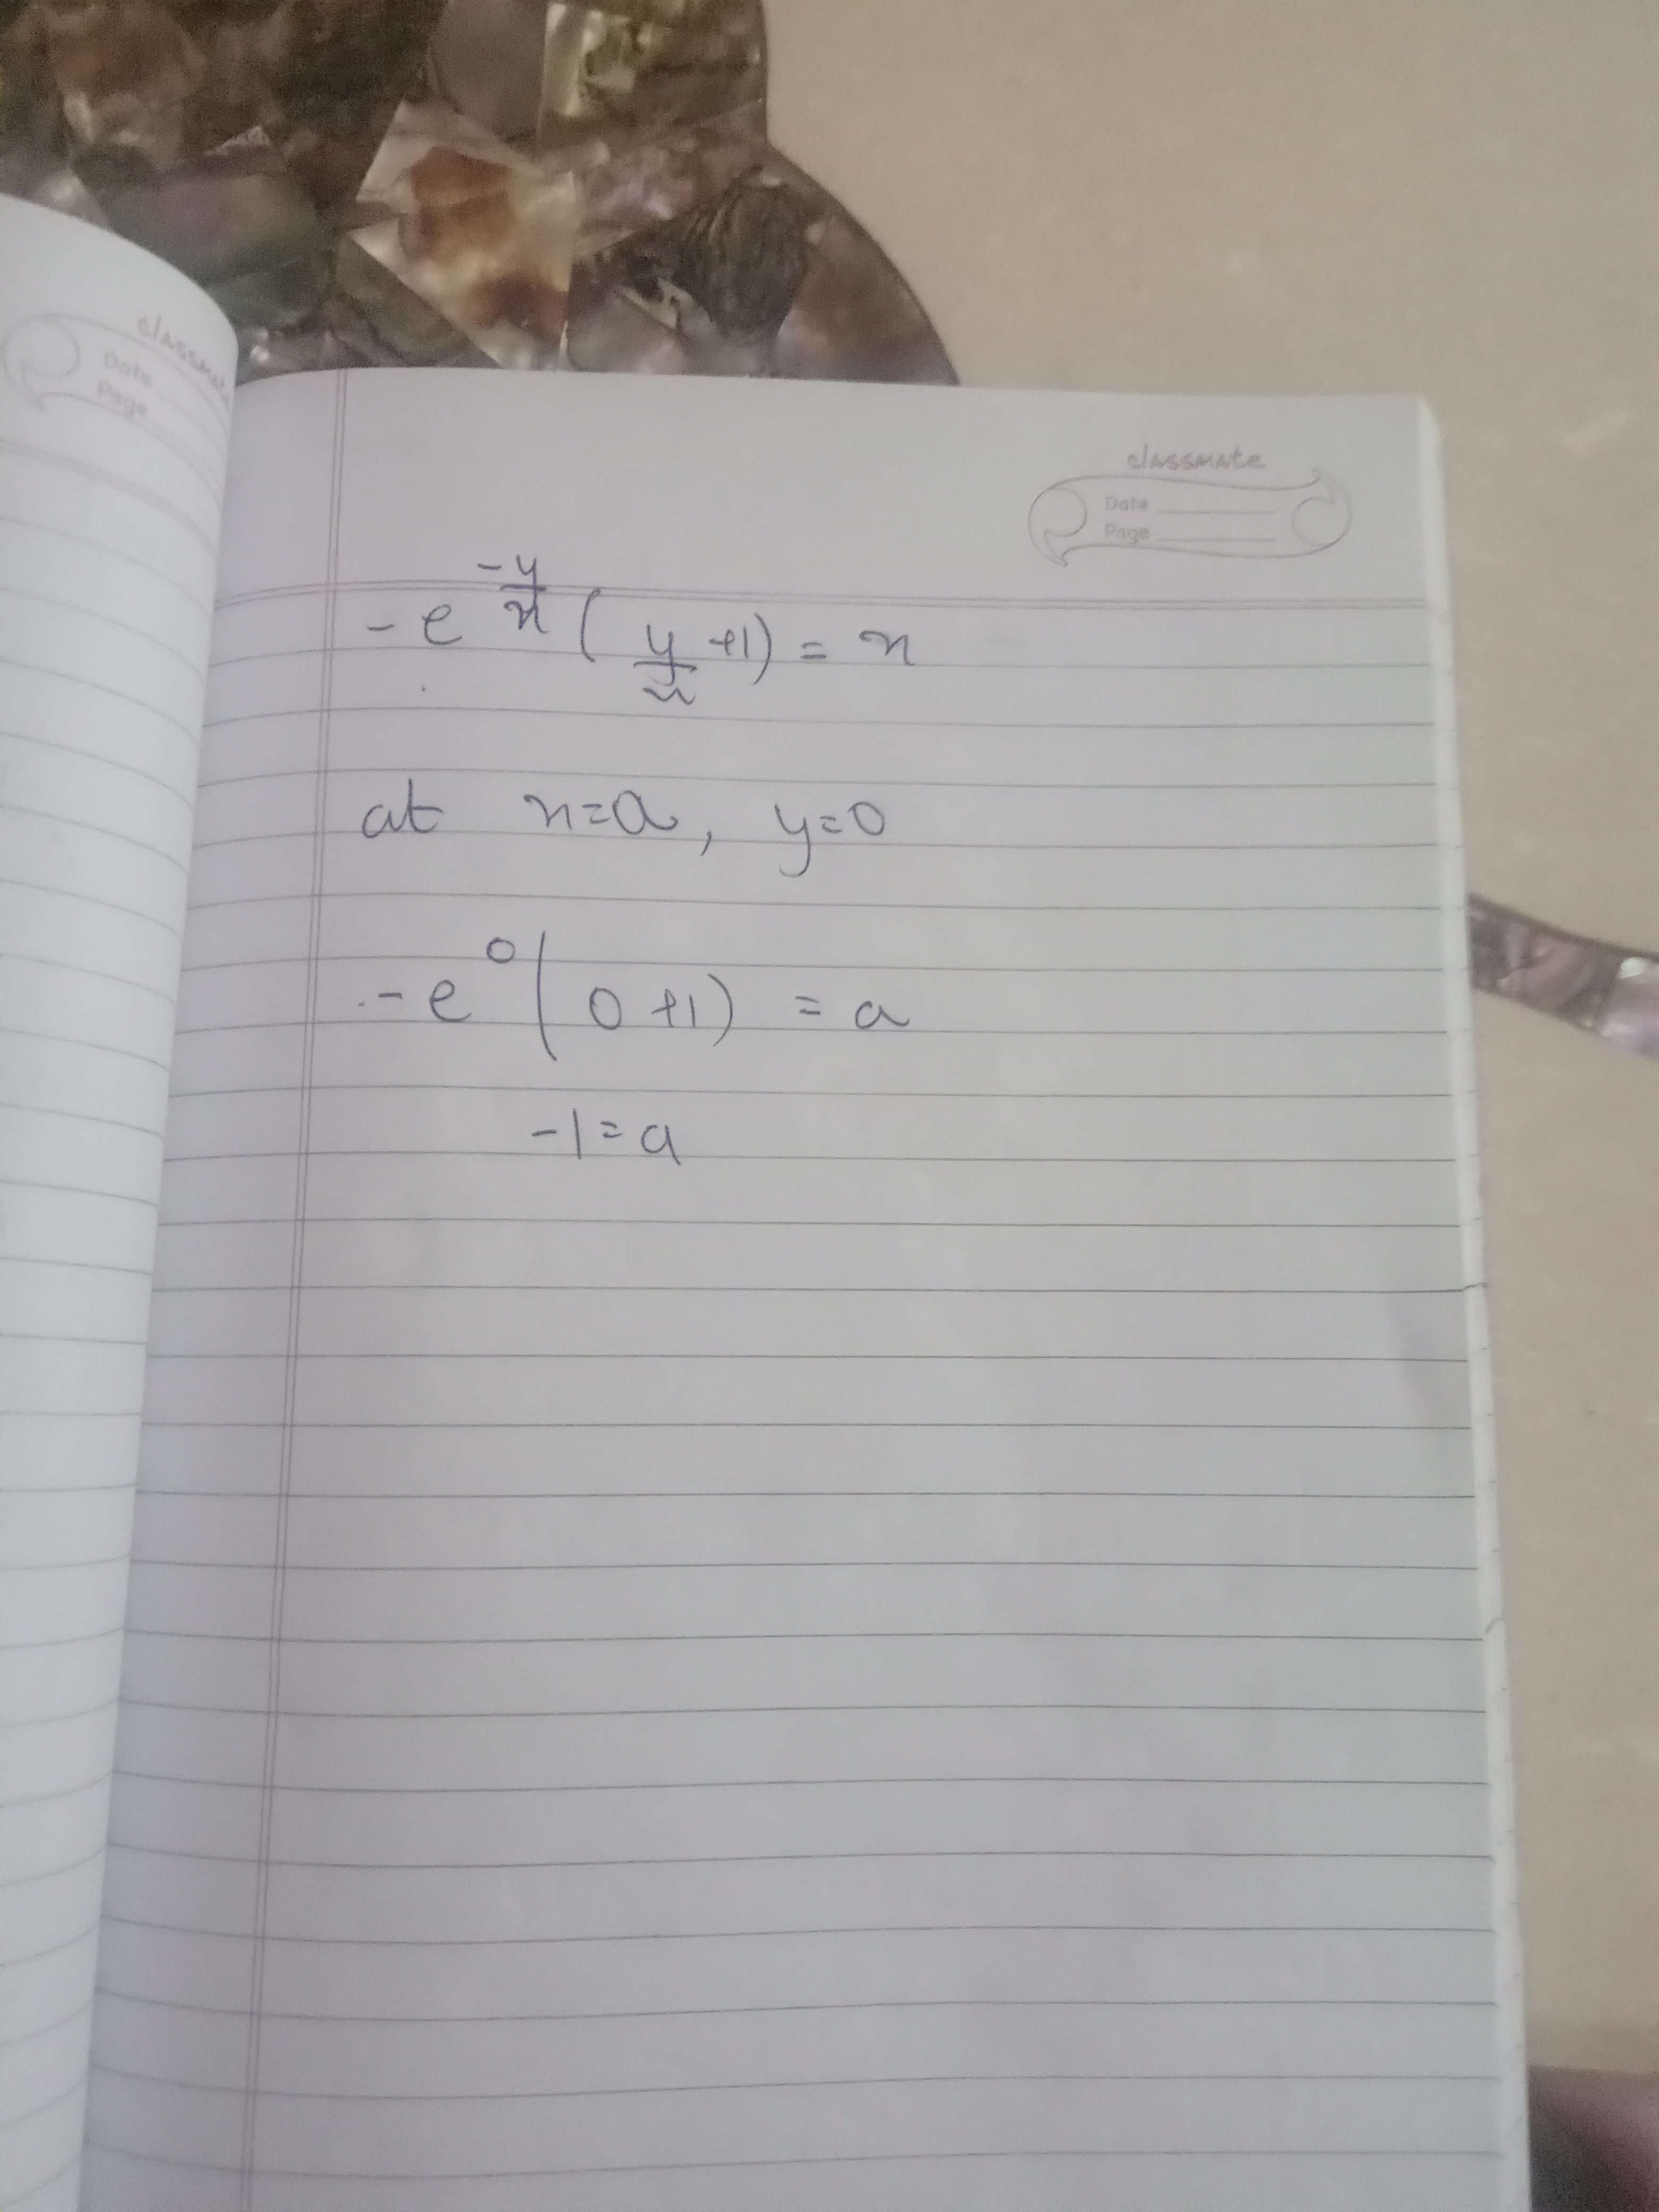 classmate
Date
Page
classmate
Date
Page
-e^(-y/x) (y/x +1) = x
at x=a, y=0
-e^0 (0+1) = a
-1=a